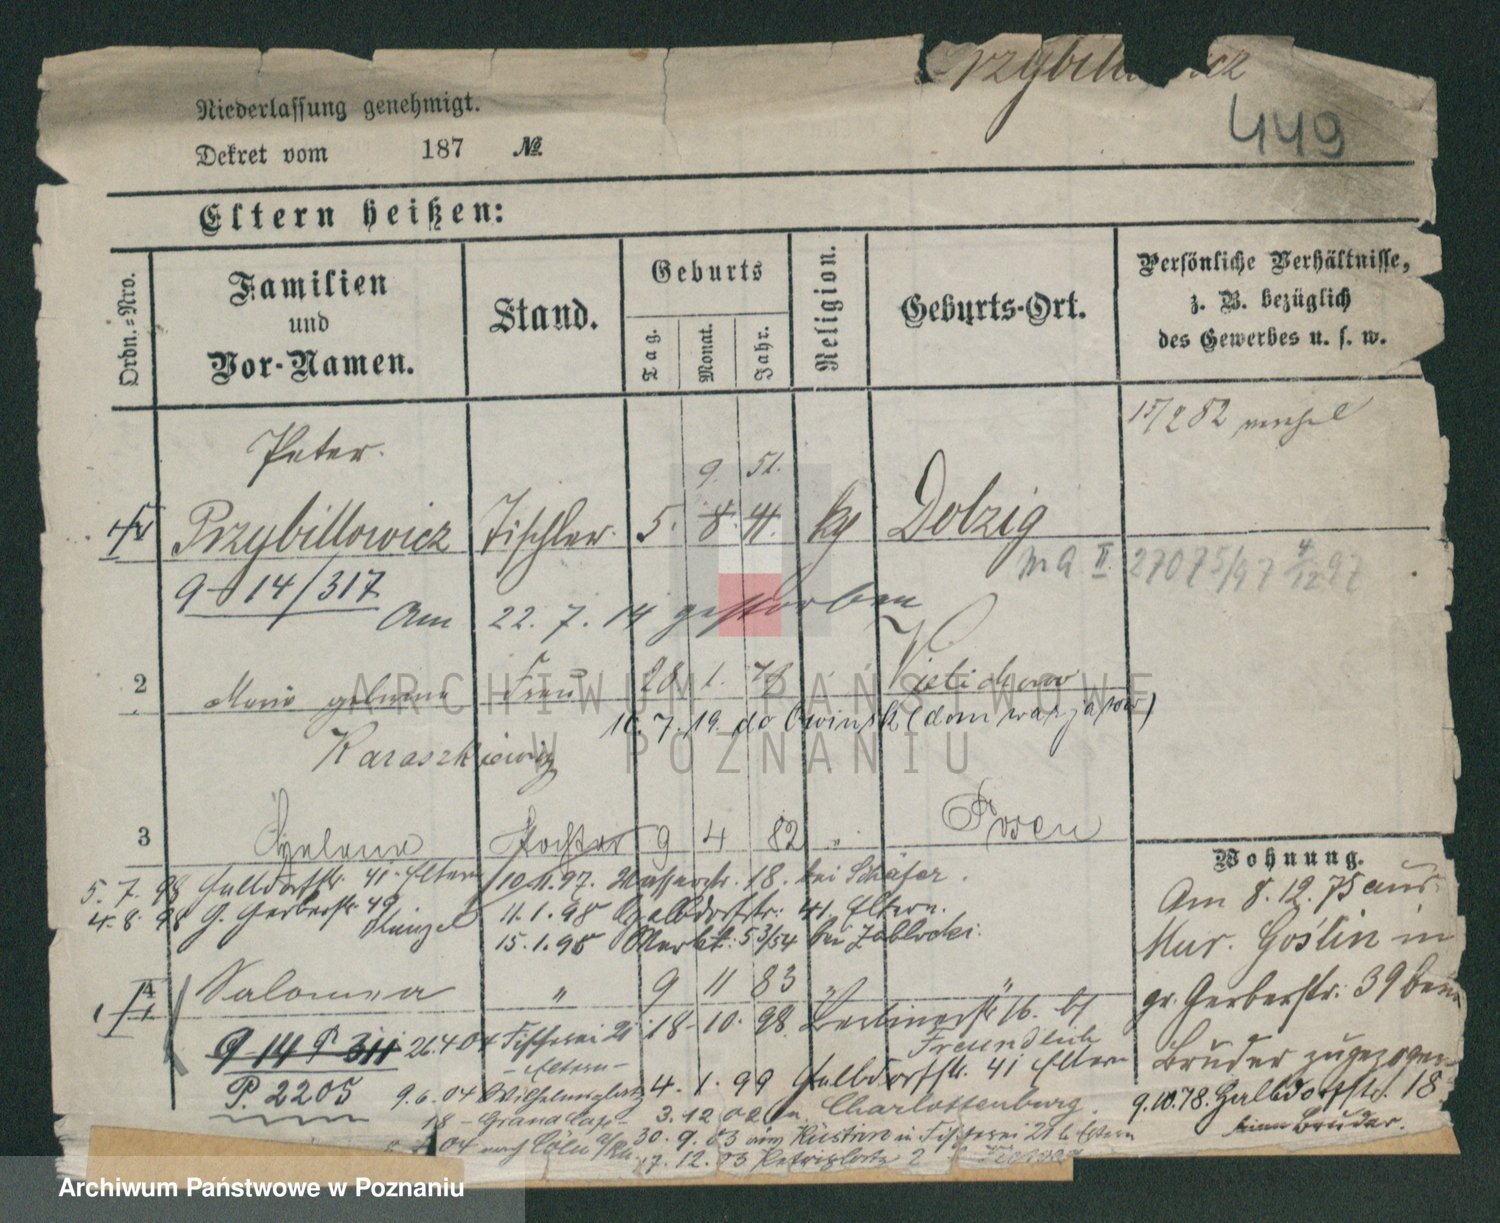 Niederlassung genehmigt.
449
Dekret vom 187 №
Eltern heißen:
Ordn.=Nro.
Familien
und
Vor-Namen.
Stand.
Geburts
Tag.
Monat.
Jahr.
Religion.
Geburts-Ort.
Persönliche Verhältnisse,
z. B. bezüglich
des Gewerbes u. s. w.
Peter
9. 51.
Przybillowicz Tischler. 5. 8. kg Dolzig
9 14/317
Am 22. 7. 14 gestorben
2 Frau 28 1.
16.7.19. do Owińsk (dom warjatów)
Karaszkiewicz
3 Helene Tochter 9 4 82 " Posen
5. 7. 98 Halbdorfstr. 41. Eltern 10.11.97. Wasserstr. 18. bei Schäfer.
4. 8. 98 G. Gerberstr. 49 11.1.98 Halbdorfstr. 41. Eltern.
15.1.98 Markt. 53/54 bei
4 Salomea " 9 11 83 " "
9 14 P 311 26.4.04 Fischerei 21 18-10. 98.
Freundlich
-Eltern- 4. 1. 99 Halbdorfstr. 41 Eltern
P. 2205 9.6.04 Wilhelmsplatz
18 - Grand Café- 3.12.02 n. Charlottenburg.
04 nach Cöln a/Rh. 30. 9. 03 aus Küstrin in Fischerei 21 b. Eltern
7. 12. 03 Petriplatz 2
Wohnung.
Am 8. 12. 75 aus
Mur. Goślin in
gr. Gerberstr. 39 beim
Bruder zugezogen
9.10.78. Halbdorfstr. 18
Bruder.
ARCHIWUM PAŃSTWOWE
W POZNANIU
Archiwum Państwowe w Poznaniu